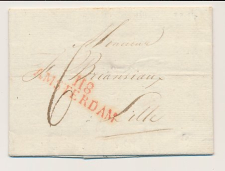 Monsieur
Briansiaux
118
AMSTERDAM
6
Lille